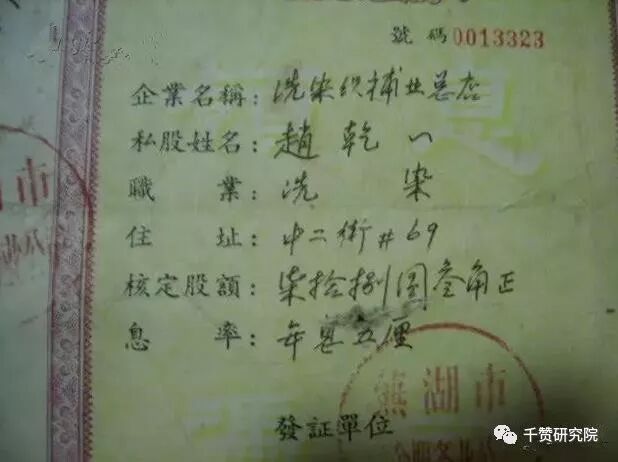 號碼0013323
企業名稱：洗染织補业总店
私股姓名：趙乾一
職業：洗染
住址：中二街#69
核定股額：柒拾捌圓叁角正
息率：年息五厘
蕪湖市
發証單位
千赞研究院